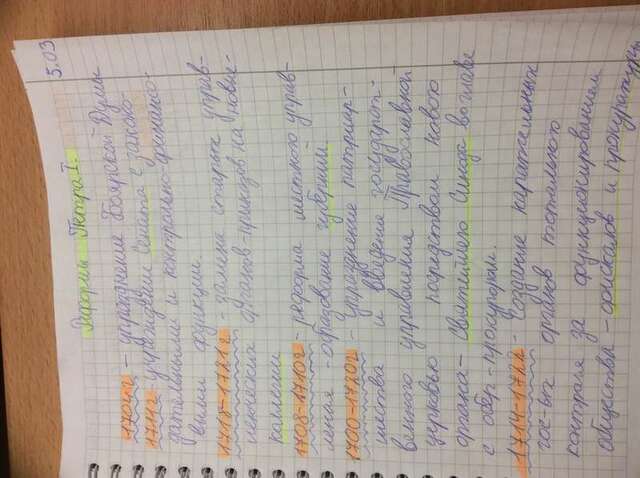 5.03
Реформы Петра I.
1704г - упразднение Боярской Думы
1711г - учреждение Сената с законо-
дательными и контрольно-финансо-
выми функции.
1718-1721г - замена старых управ-
ленческих органов-приказов на новые-
коллегии
1708-1710г - реформа местного управ-
ления - образование губерний.
1700-1720г - упразднение патриар-
шества и введение государст-
венного управления Православной
церковью посредством нового
органа - Святейшего Синода во главе
с обер-прокурором.
1714-1722 - Создание карательных
гос-ых органов тотального
контроля за функционированием
общества - фискалов и прокуратуры